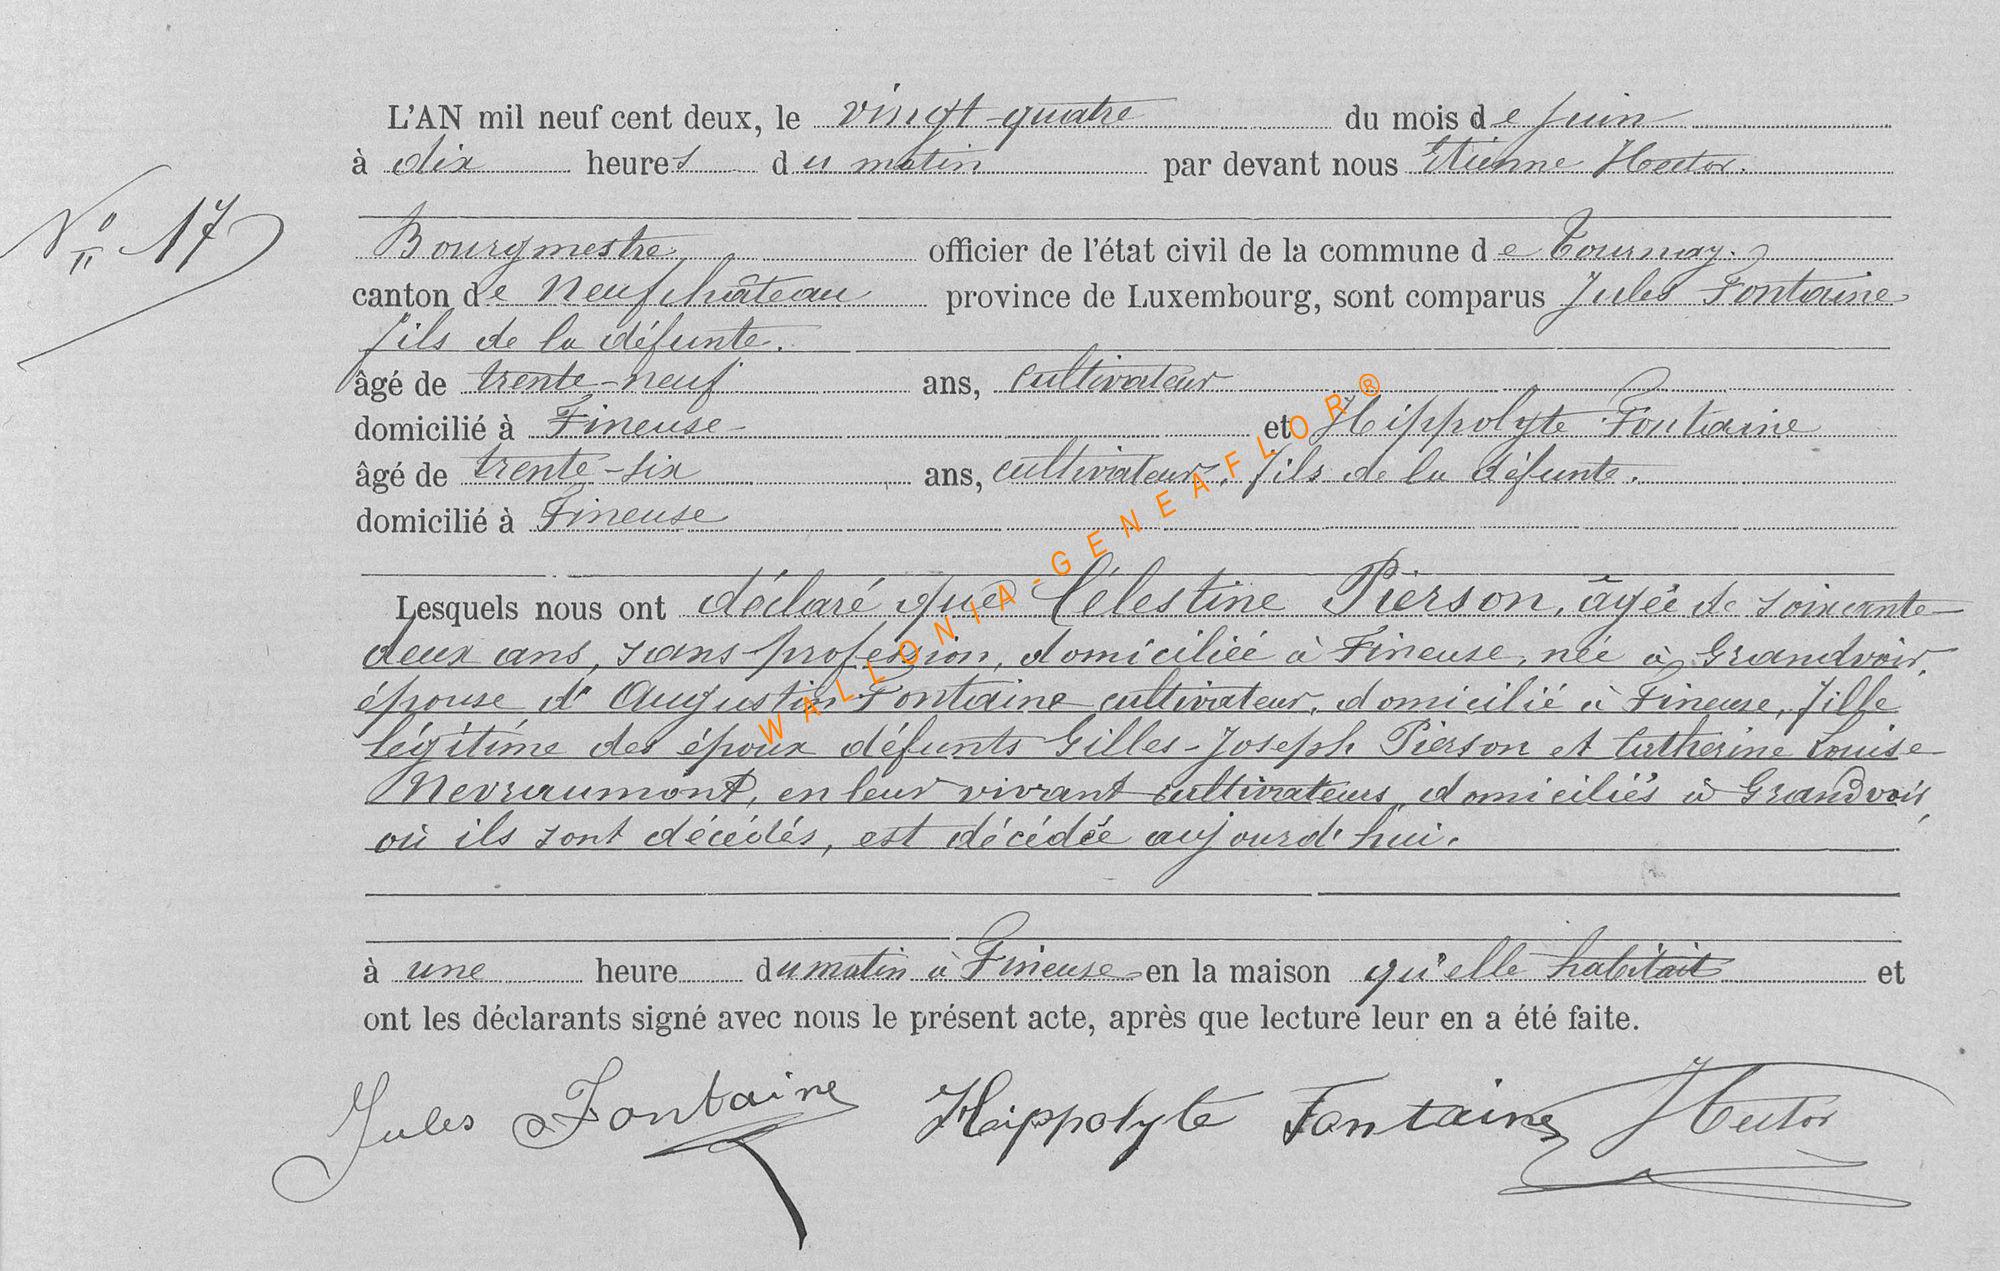 L'AN mil neuf cent deux, le vingt-quatre du mois de juin
à dix heures du matin par devant nous Etienne Hector.
N° 17
Bourgmestre officier de l'état civil de la commune de Tournay.
canton de Neufchâteau province de Luxembourg, sont comparus Jules Fontaine
fils de la défunte.
âgé de trente-neuf ans, cultivateur
domicilié à Fineuse et Hippolyte Fontaine
âgé de trente-six ans, cultivateur, fils de la défunte.
domicilié à Fineuse
Lesquels nous ont déclaré que Célestine Pierson, âgée de soixante-
deux ans, sans profession, domiciliée à Fineuse, née à Grandvoir,
épouse d'Augustin Fontaine cultivateur, domicilié à Fineuse, fille
légitime des époux défunts Gilles-Joseph Pierson et Catherine Louise
Nevraumont, en leur vivant cultivateurs, domiciliés à Grandvoir,
où ils sont décédés, est décédée aujourd'hui.
à une heure du matin à Fineuse en la maison qu'elle habitait et
ont les déclarants signé avec nous le présent acte, après que lecture leur en a été faite.
Jules Fontaine Hippolyte Fontaine Hector
WALLONIA-GENEAFLOR®